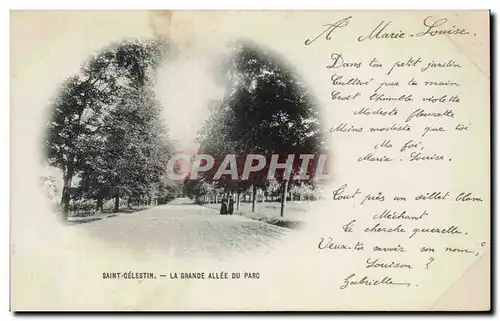 A Marie-Louise.
Dans ton petit jardin
Cultivé par ta main
Croît l'humble violette
Modeste fleurette
Moins modeste que toi
Ma foi,
Marie-Louise.
Tout près un œillet blanc
Méchant
Te cherche querelle.
Veux-tu savoir son nom,
Louison ?
Gabrielle
CPAPHIL.COM
SAINT-CÉLESTIN. — LA GRANDE ALLÉE DU PARC